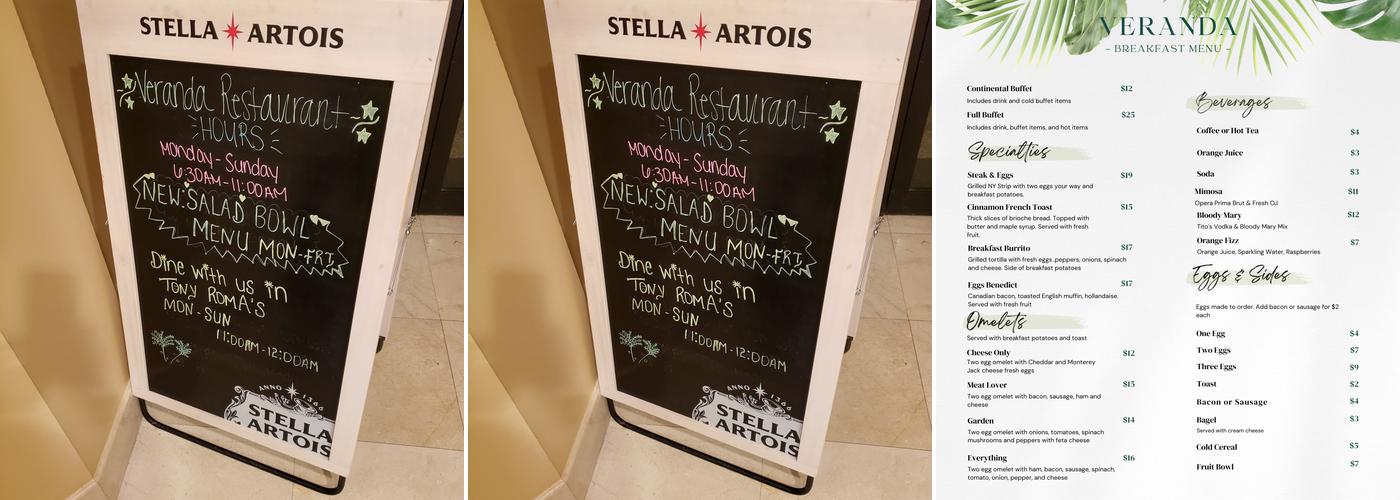 STELLA ARTOIS
Veranda Restaurant
HOURS
Monday - Sunday
6:30AM-11:00AM
NEW: SALAD BOWL
MENU MON-FRI
Dine with us in
TONY ROMA'S
MON - SUN
11:00AM-12:00AM
ANNO 1366
STELLA
ARTOIS
STELLA ARTOIS
Veranda Restaurant
HOURS
Monday - Sunday
6:30AM-11:00AM
NEW: SALAD BOWL
MENU MON-FRI
Dine with us in
TONY ROMA'S
MON - SUN
11:00AM-12:00AM
ANNO 1366
STELLA
ARTOIS
VERANDA
- BREAKFAST MENU -
Continental Buffet $12
Includes drink and cold buffet items
Full Buffet $25
Includes drink, buffet items, and hot items
Specialties
Steak & Eggs $19
Grilled NY Strip with two eggs your way and
breakfast potatoes.
Cinnamon French Toast $15
Thick slices of brioche bread. Topped with
butter and maple syrup. Served with fresh
fruit.
Breakfast Burrito $17
Grilled tortilla with fresh eggs ,peppers, onions, spinach
and cheese. Side of breakfast potatoes
Eggs Benedict $17
Canadian bacon, toasted English muffin, hollandaise.
Served with fresh fruit
Omelets
Served with breakfast potatoes and toast
Cheese Only $12
Two egg omelet with Cheddar and Monterey
Jack cheese fresh eggs
Meat Lover $15
Two egg omelet with bacon, sausage, ham and
cheese
Garden $14
Two egg omelet with onions, tomatoes, spinach
mushrooms and peppers with feta cheese
Everything $16
Two egg omelet with ham, bacon, sausage, spinach,
tomato, onion, pepper, and cheese
Beverages
Coffee or Hot Tea $4
Orange Juice $3
Soda $3
Mimosa $11
Opera Prima Brut & Fresh OJ
Bloody Mary $12
Tito's Vodka & Bloody Mary Mix
Orange Fizz $7
Orange Juice, Sparkling Water, Raspberries
Eggs & Sides
Eggs made to order. Add bacon or sausage for $2
each
One Egg $4
Two Eggs $7
Three Eggs $9
Toast $2
Bacon or Sausage $4
Bagel $3
Served with cream cheese
Cold Cereal $5
Fruit Bowl $7